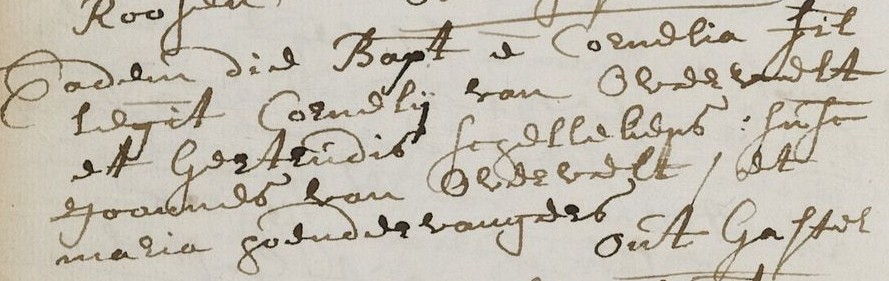 Roosen
Eadem die Bapt e Cornelia fil
legit Cornelij van Overvelt
et Gertrudis segellekens : susc
Joannes van Overvelt / et
maria hoendervangers
out Gastel